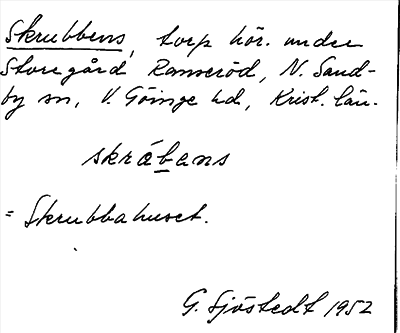 Skrubbens, torp hör. under
Storegård Ranseröd, N. Sand-
by sn, V. Göinge hd, Krist. län.
skråbans
= Skrubbahuset.
G. Sjöstedt 1952